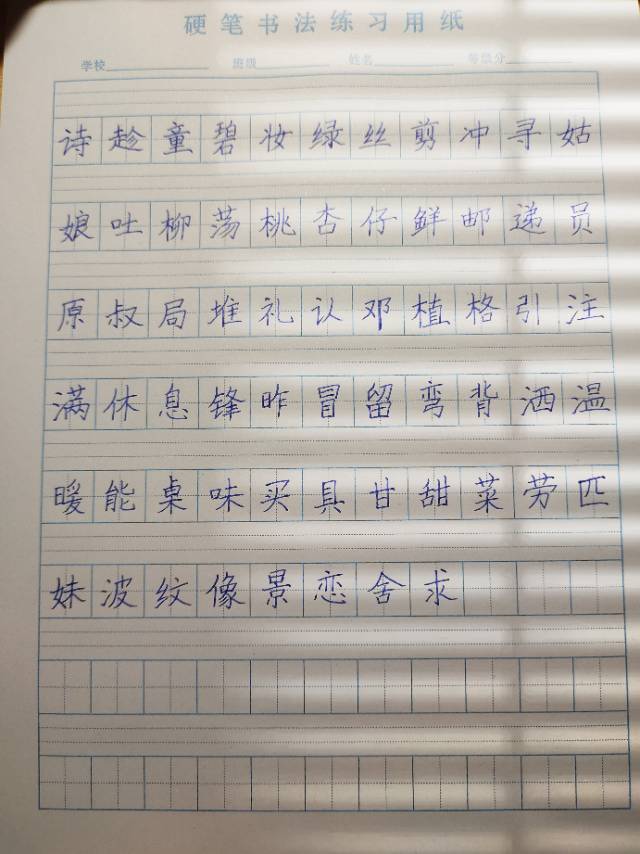 硬笔书法练习用纸
学校 班级 姓名 等级分
诗趁童碧妆绿丝剪冲寻姑
娘吐柳荡桃杏仔鲜邮递员
原叔局堆礼认邓植格引注
满休息锋昨冒留弯背洒温
暖能桌味买具甘甜菜劳匹
妹波纹像景恋舍求